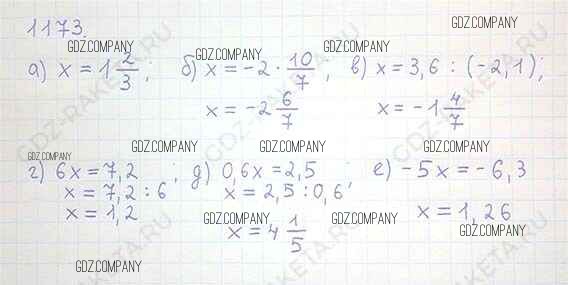 1173.
а) x = 1 2/3; б) x = -2 · 10/7, в) x = 3,6 : (-2,1);
x = -2 6/7 x = -1 4/7
г) 6x = 7,2 ; д) 0,6x = 2,5 ; е) -5x = -6,3
x = 7,2 : 6 x = 2,5 : 0,6 x = 1,26
x = 1,2 x = 4 1/5
GDZ.COMPANY
GDZ.COMPANY
GDZ.COMPANY
GDZ.COMPANY
GDZ.COMPANY
GDZ.COMPANY
GDZ.COMPANY
GDZ.COMPANY
GDZ.COMPANY
GDZ.COMPANY
GDZ.COMPANY
GDZ.COMPANY
GDZ-RAKETA.RU
GDZ-RAKETA.RU
GDZ-RAKETA.RU